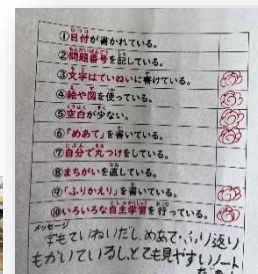 ①日付が書かれている。
②問題番号を記している。
③文字はていねいに書けている。
④絵や図を使っている。
⑤空白が少ない。
⑥「めあて」を書いている。
⑦自分で丸つけをしている。
⑧まちがいを直している。
⑨「ふりかえり」を書いている。
⑩いろいろな自主学習を行っている。
メッセージ
字もていねいだし、めあて・ふり返り
もかいているしとても見やすいノート